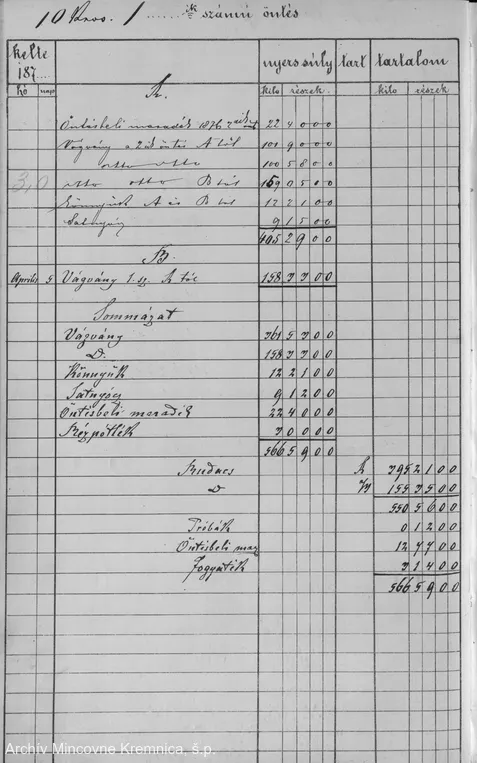 10 Kros. 1 ik számú öntés
kelte nyers súly tart tartalom
187
hó nap kilo részek. kilo részek
A.
Öntésbeli maradék 1876 22 4000
Vágvány a 2ik öntés A tól 101 9000
otto otto 100 5800
3,0 otto otto B tól 159 0500
Könnyük A és B tól 12 2100
9 1500
405 2900
B.
Április 5 Vágvány 1. sz. A tól 158 3300
Sommázat
Vágvány 361 5300
D. 158 3300
Könnyük 12 2100
9 1200
Öntésbeli maradék 22 4000
Rézpótlék 3 0000
566 5900
Rudacs A 395 2100
D B 155 3500
550 5600
Próbák 0 1200
Öntésbeli mar 12 7700
Fogyaték 3 1400
566 5900
Archív Mincovne Kremnica, š.p.